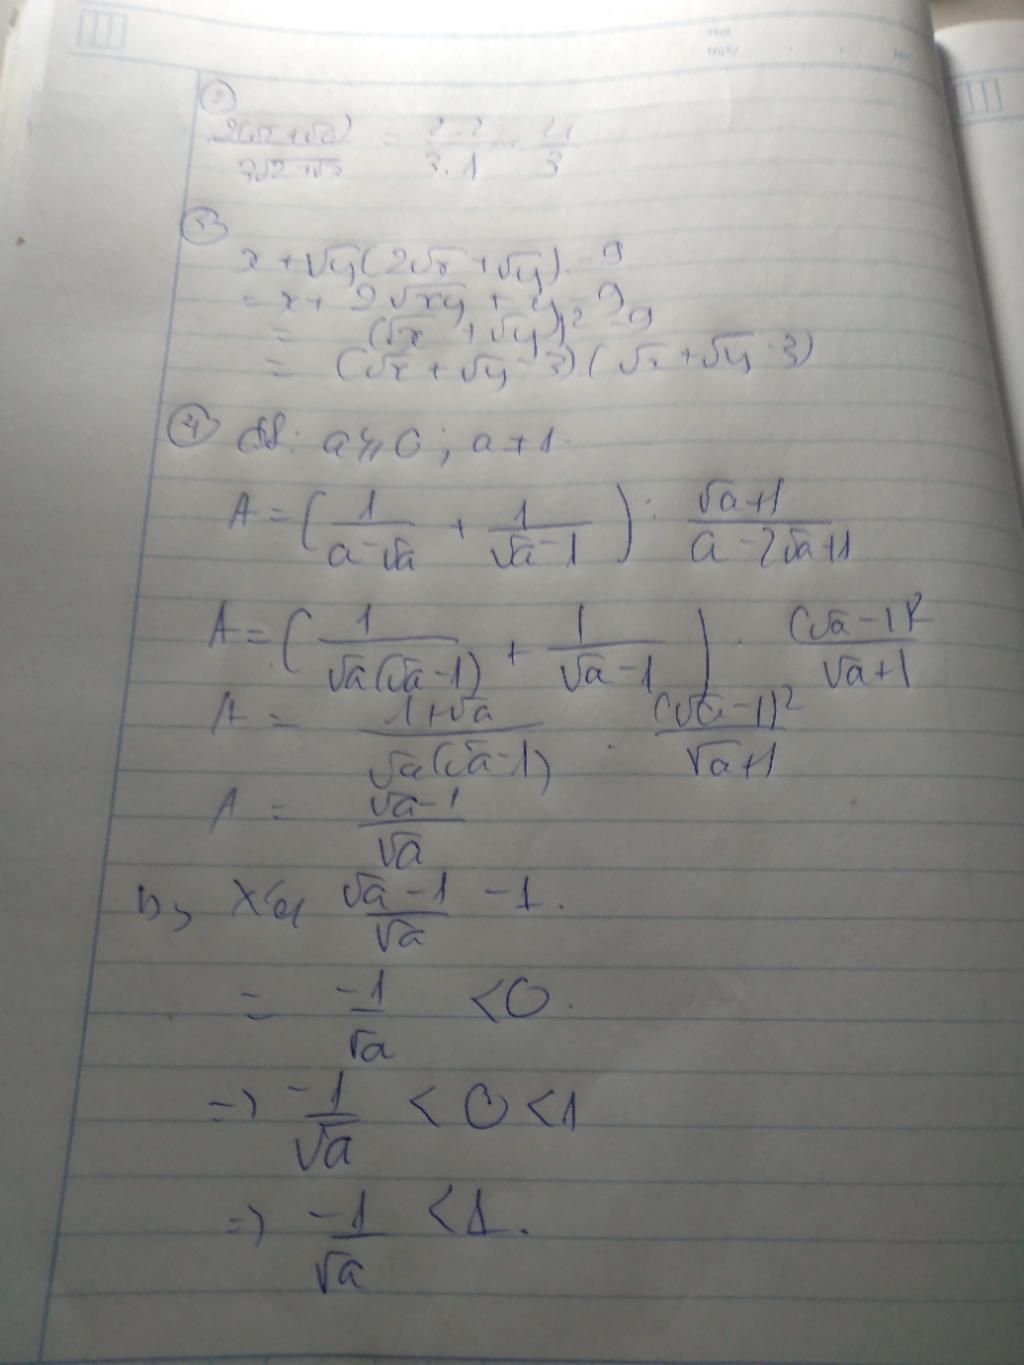 Thứ
Ngày
No.
②
= 2.2/3.1 = 4/3
③
x + √y(2√x + √y) - 9
= x + 2√xy + y - 9
= (√x + √y)² - 9
= (√x + √y - 3)(√x + √y - 3)
④ a ≥ 0; a ≠ 1.
A = (1/(a - √a) + 1/(√a - 1)) : (√a + 1)/(a - 2√a + 1)
A = (1/(√a(√a - 1)) + 1/(√a - 1)) . (√a - 1)²/(√a + 1)
A = (1 + √a)/(√a(√a - 1)) . (√a - 1)²/(√a + 1)
A = (√a - 1)/√a
b, Xét (√a - 1)/√a - 1.
= -1/√a < 0.
=> -1/√a < 0 < 1
=> -1/√a < 1.